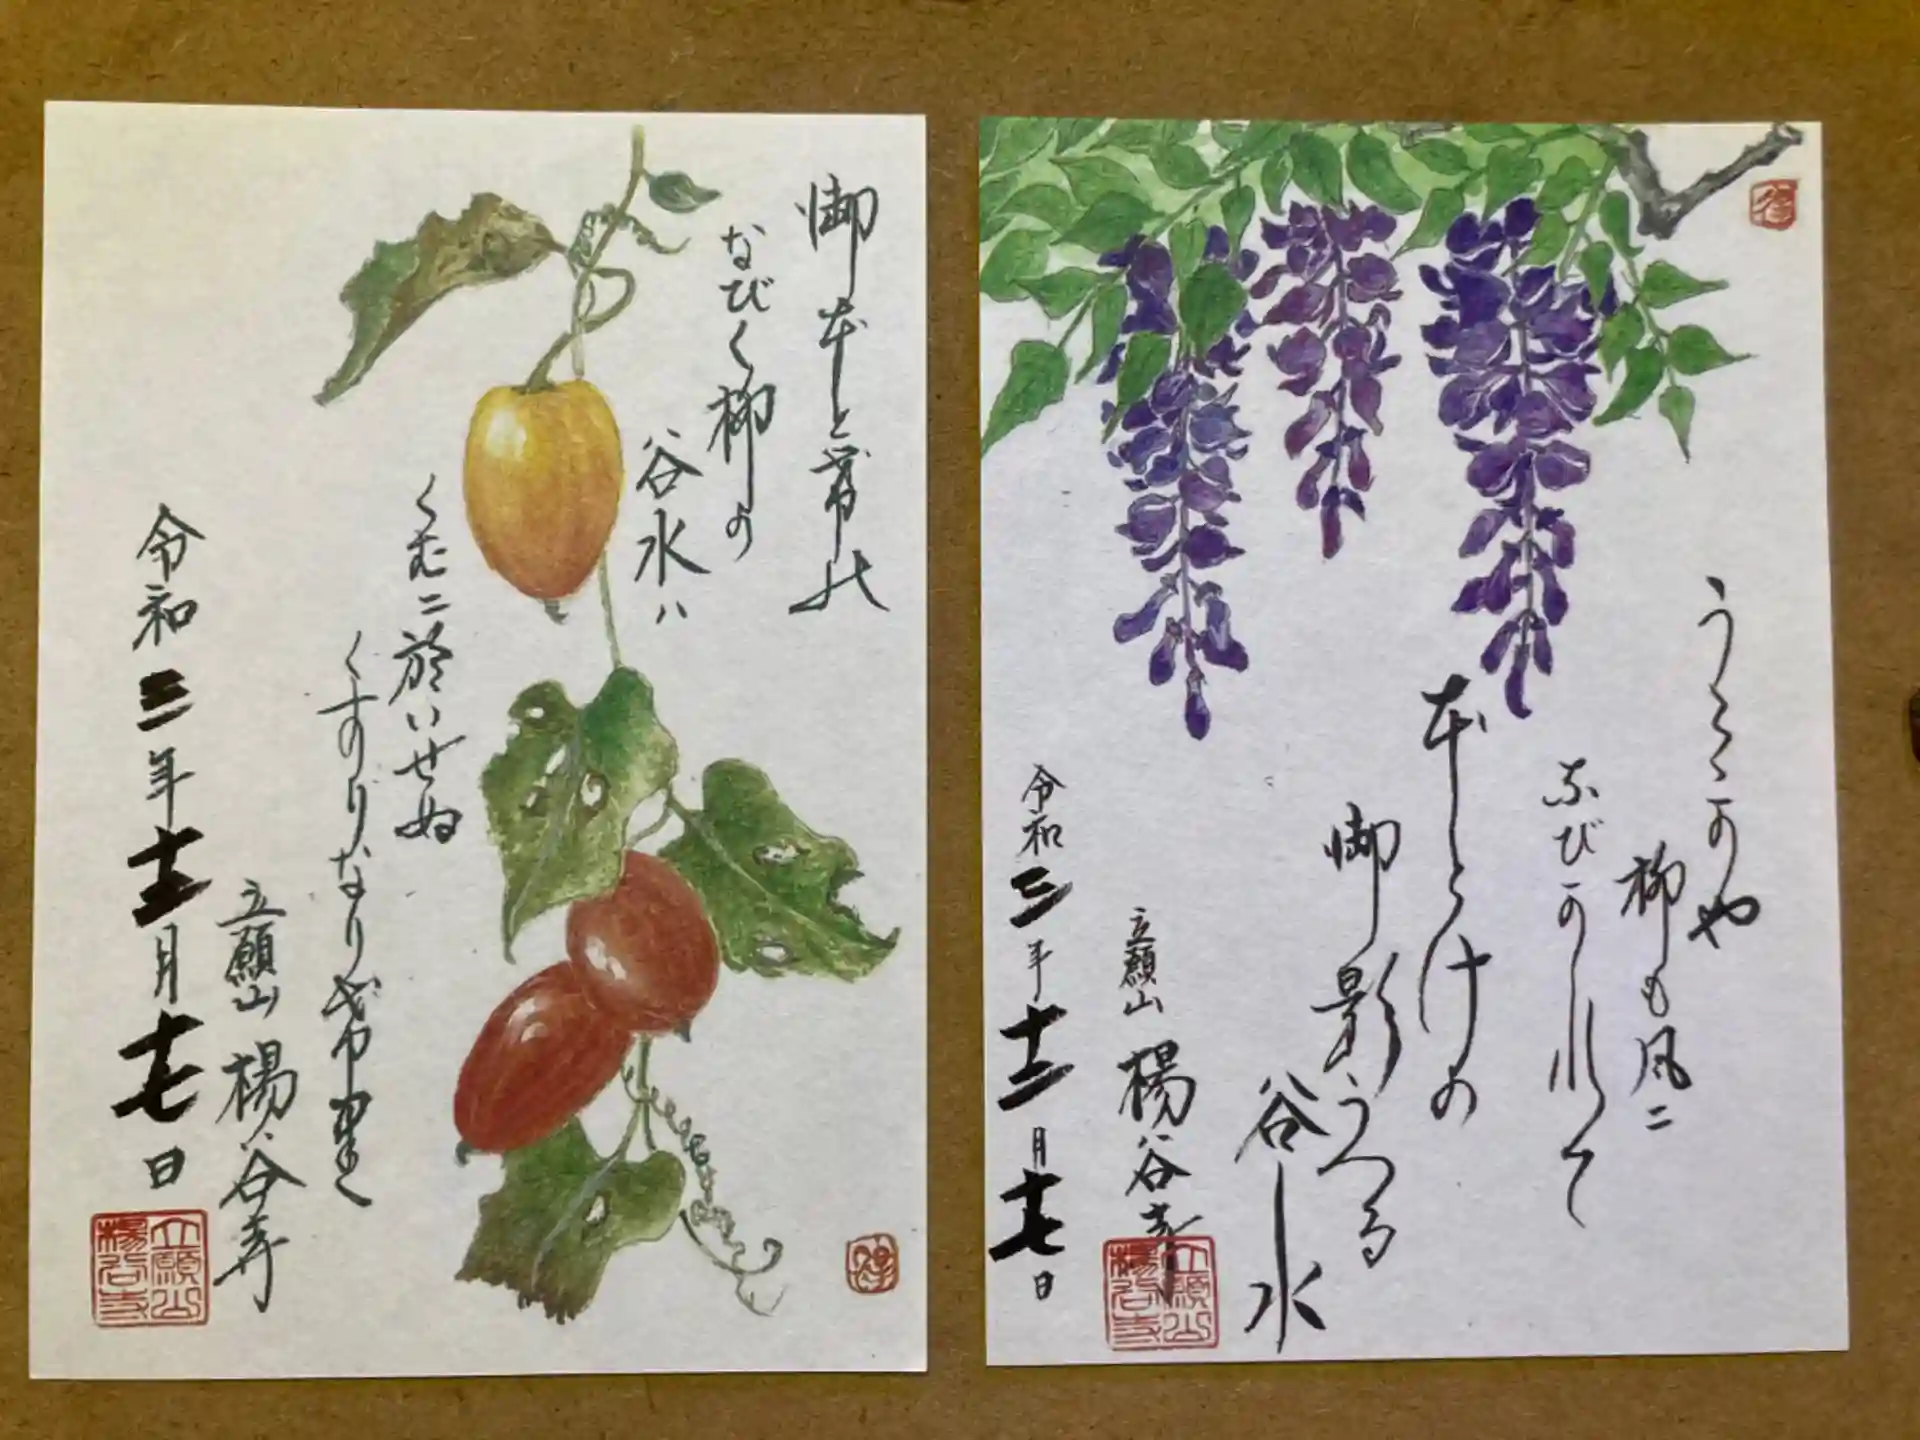 御本と希の
なびく柳の
谷水ハ
くむ二於いせぬ
くすりなり
立願山 楊谷寺
令和三年十二月十七日
立願山
楊谷寺
柳も風二
なびかれて
本とけの
御影うつる
谷水
立願山 楊谷寺
令和三年十二月十七日
立願山
楊谷寺